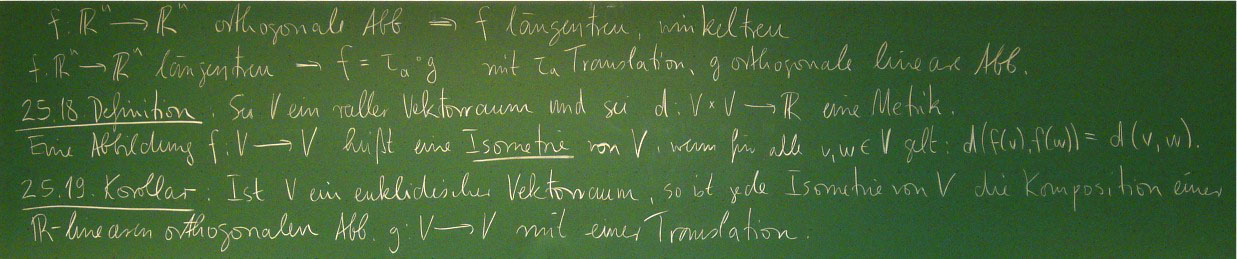 f: ℝⁿ → ℝⁿ orthogonale Abb ⇒ f längentreu, winkeltreu
f: ℝⁿ → ℝⁿ längentreu → f = τₐ∘g mit τₐ Translation, g orthogonale lineare Abb.
25.18 Definition. Sei V ein reeller Vektorraum und sei d: V × V → ℝ eine Metrik.
Eine Abbildung f: V → V heißt eine Isometrie von V, wenn für alle v,w ∈ V gilt: d(f(v), f(w)) = d(v, w).
25.19. Korollar. Ist V ein euklidischer Vektorraum, so ist jede Isometrie von V die Komposition einer
ℝ-linearen orthogonalen Abb. g: V → V mit einer Translation.